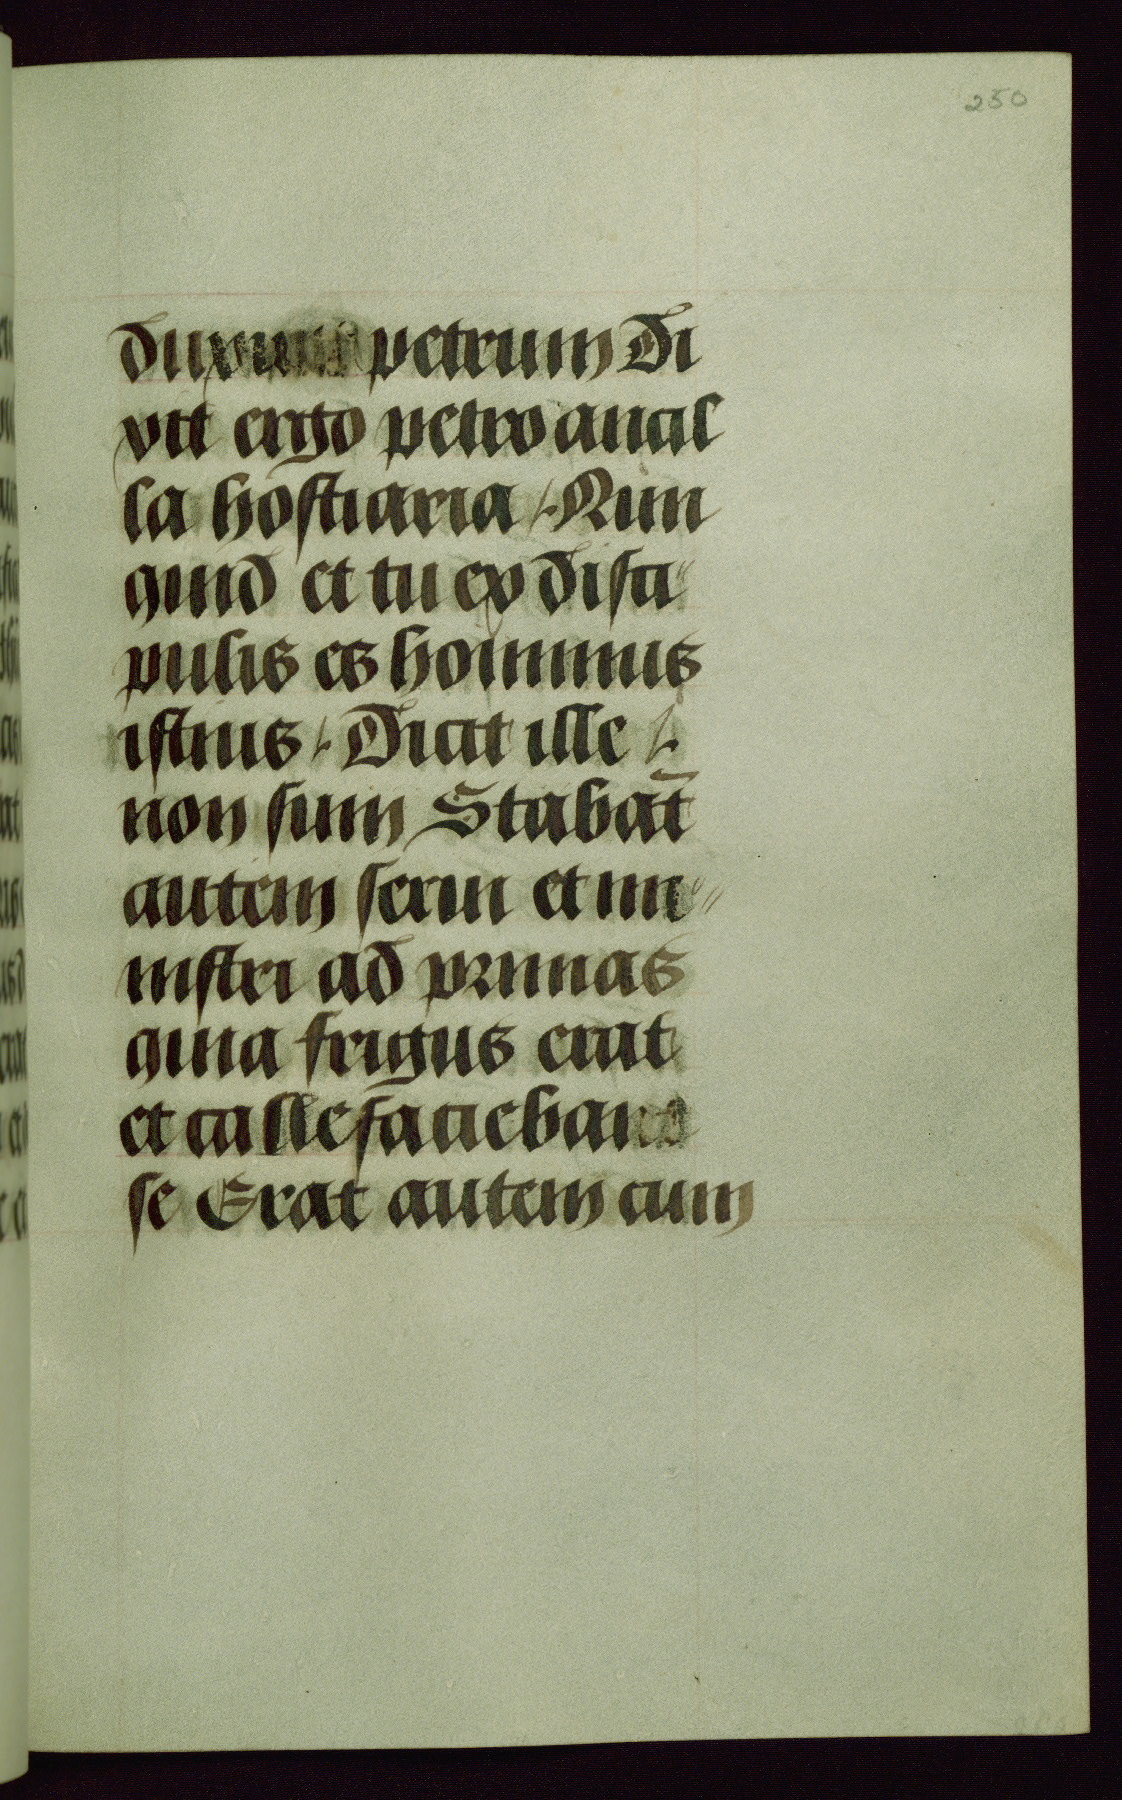 250
petrum Di
xit ergo petro ancil
la hostiaria /. Nun
quid et tu ex disci
pulis es hominis
istius /. Dicit ille /.
non sum Stabat̄
autem serui et mi
nistri ad prunas
quia frigus erat
et callefaciebant
se Erat autem cum